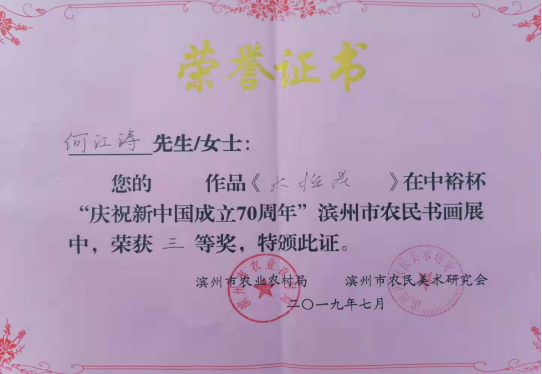 荣誉证书
何江涛 先生/女士：
您的 作品《 》在中裕杯
“庆祝新中国成立70周年”滨州市农民书画展
中，荣获 三 等奖，特颁此证。
滨州市农业农村局 滨州市农民美术研究会
二〇一九年七月